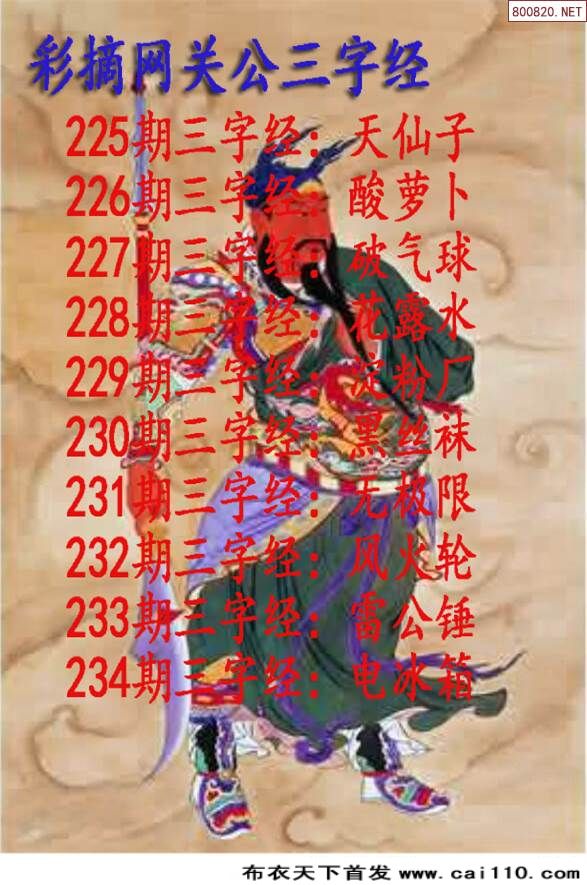 800820.NET
彩摘网关公三字经
225期三字经：天仙子
226期三字经：酸萝卜
227期三字经：破气球
228期三字经：花露水
229期三字经：淀粉厂
230期三字经：黑丝袜
231期三字经：无极限
232期三字经：风火轮
233期三字经：雷公锤
234期三字经：电冰箱
布衣天下首发 www.cai110.com